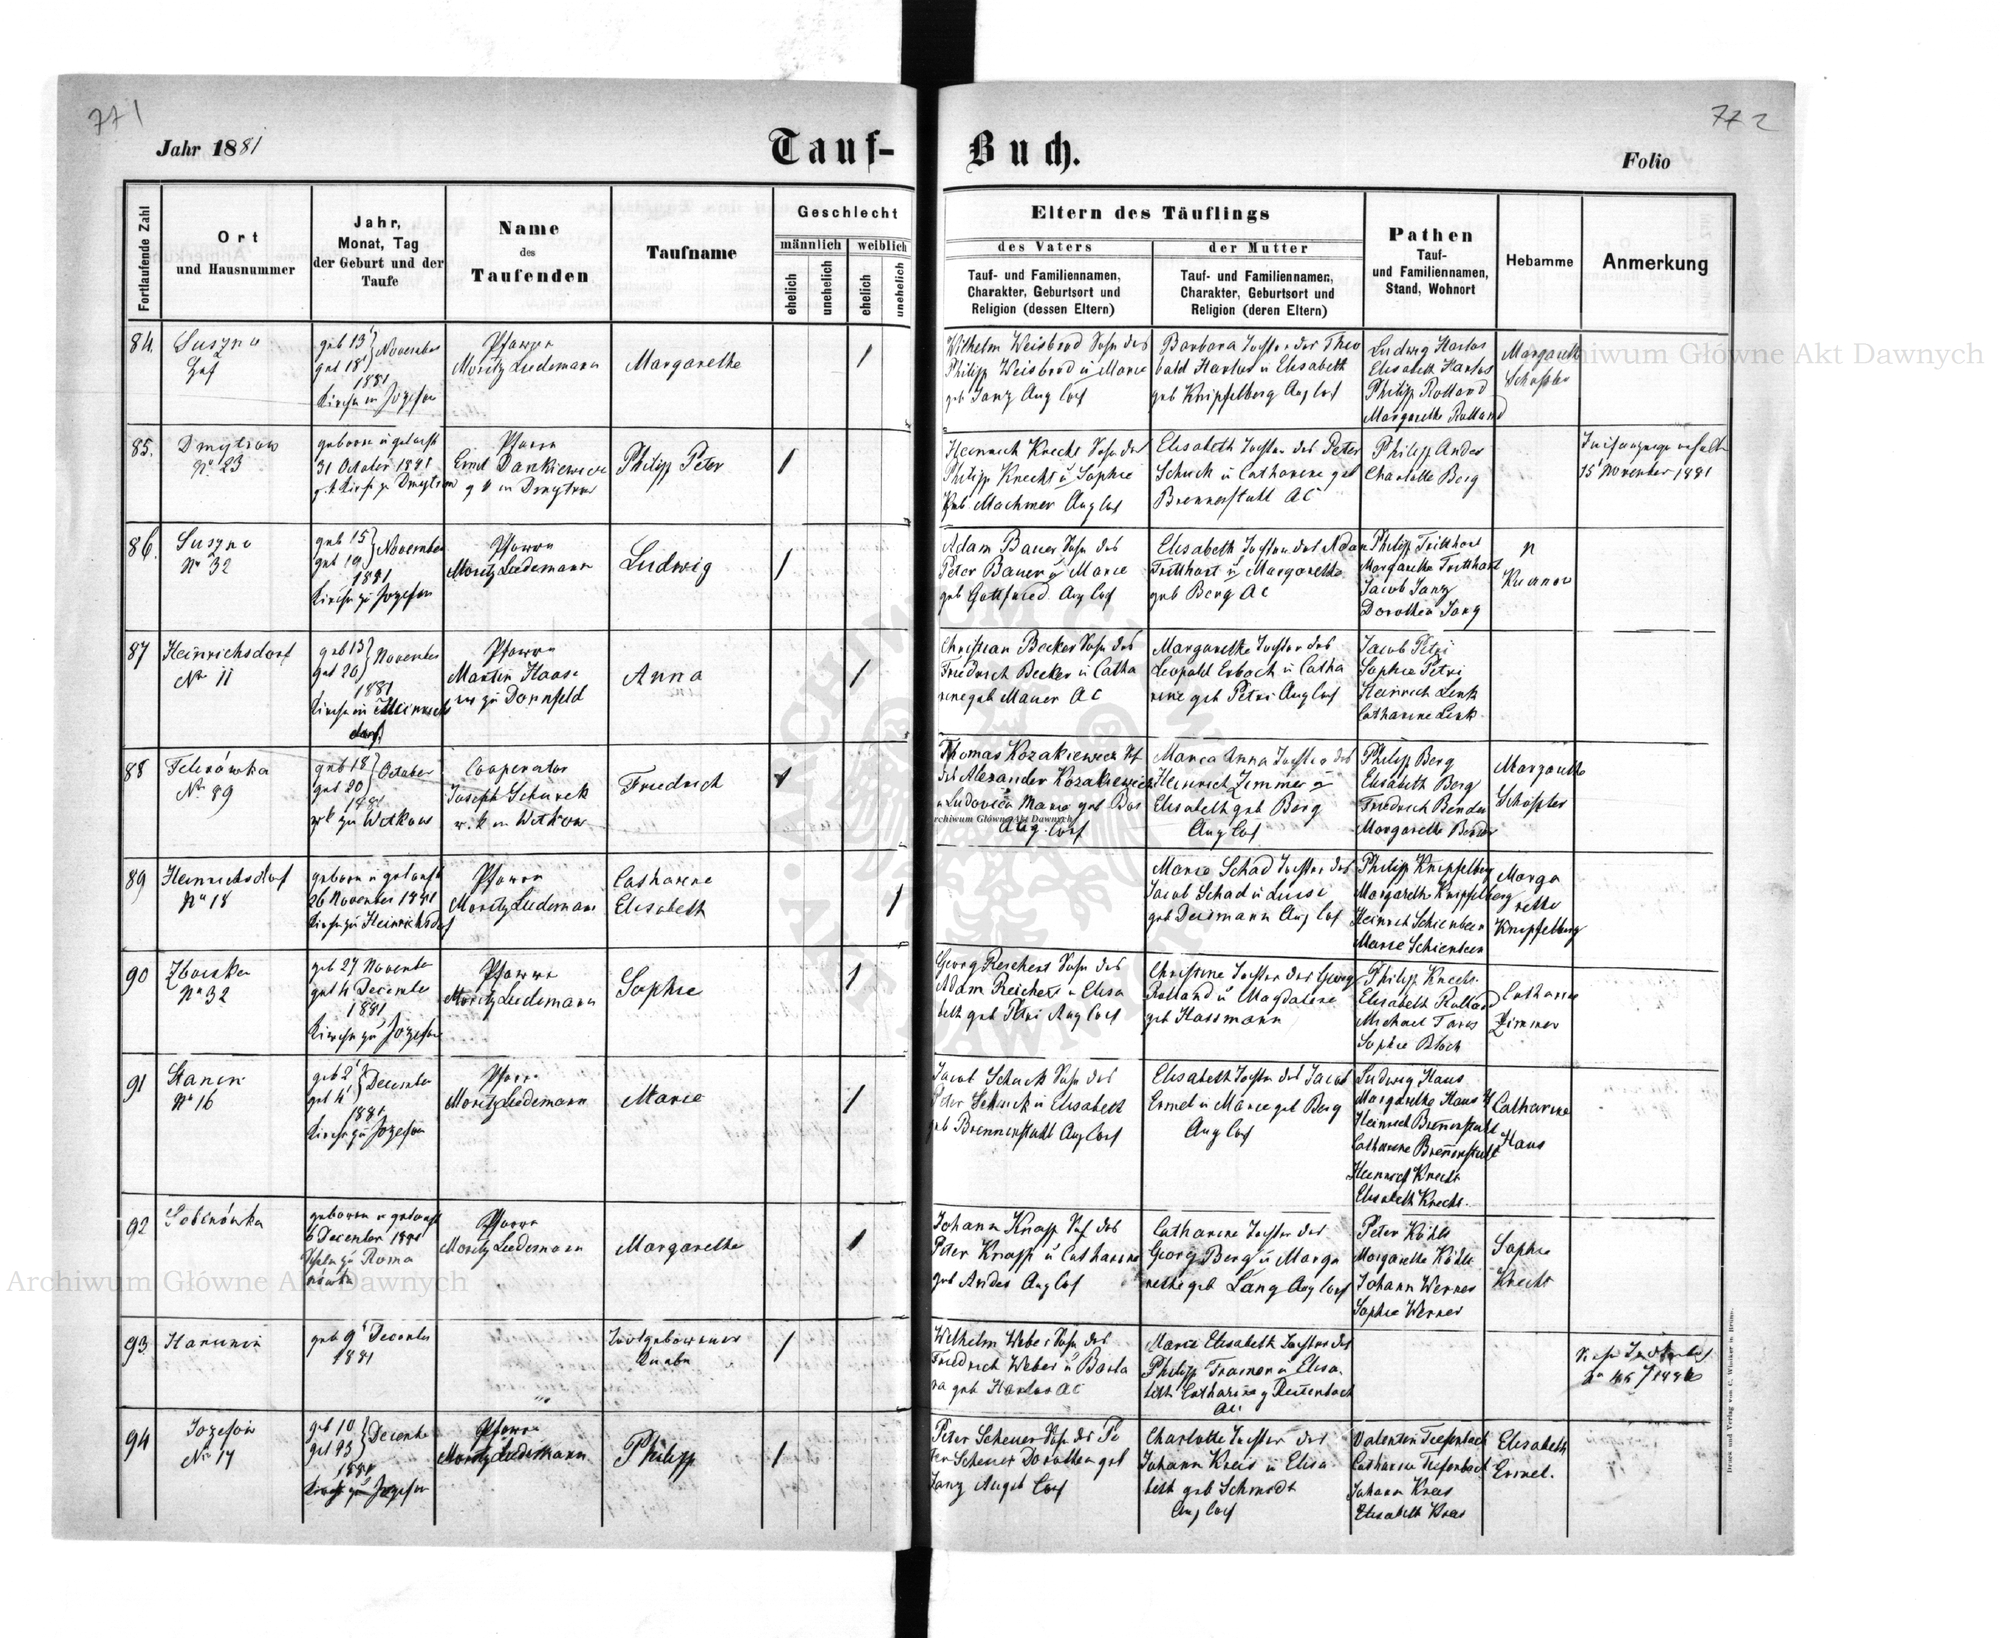 771
772
Jahr 1881
Tauf-Buch.
Folio
Fortlaufende Zahl
Ort
und Hausnummer
Jahr,
Monat, Tag
der Geburt und der
Taufe
Name
des
Taufenden
Taufname
Geschlecht
männlich
weiblich
ehelich
unehelich
ehelich
unehelich
Eltern des Täuflings
des Vaters
Tauf- und Familiennamen,
Charakter, Geburtsort und
Religion (dessen Eltern)
der Mutter
Tauf- und Familiennamen,
Charakter, Geburtsort und
Religion (deren Eltern)
Pathen
Tauf-
und Familiennamen,
Stand, Wohnort
Hebamme
Anmerkung
84.
Suszno
geb 13 November
get 18
1881
Kirche in Jozefow
Pfarrer
Moritz Ludemann
Margarethe
Wilhelm Weisbrod Sohn des
Philipp Weisbrod u Marie
geb Janz Aug Conf
Barbara Tochter des Theo
bald Harlos u Elisabeth
geb Knipfelberg Aug Conf
Ludwig Harlos
Elisabeth Harlos
Philipp Rolland
Margarethe Rolland
Margareth
Schossler
85.
Dmytrow
No 23
geboren u getauft
31 October 1881
Pfarrer
Ernst Dankiewicz
g k in Dmytrow
Philipp Peter
Heinrich Knecht Sohn des
Philipp Knecht u Sophie
geb. Machmer Aug Conf
Elisabeth Tochter des Peter
Schuck u Catharine geb
Brennenstuhl AC
Philipp Andes
Charlotte Berg
15 November 1881
86.
Suszno
No 32
geb 15 November
get 19
1881
Kirche zu Jozefow
Pfarrer
Moritz Ludemann
Ludwig
Adam Bauer Sohn des
Peter Bauer u Marie
geb Gottfried Aug Conf
Elisabeth Tochter des Adam
Tritthart u Margarethe
geb Berg AC
Philipp Tritthart
Margarethe Tritthart
Jacob Janz
Dorothea Janz
87
Heinrichsdorf
No 11
geb 13 November
get 20
1881
Kirche in Heinrichs
dorf
Pfarrer
Martin Haase
zu Dornfeld
Anna
Christian Becker Sohn des
Friedrich Becker u Catha
rine geb Mauer AC
Margarethe Tochter des
Leopold Erbach u Catha
rine geb Petri Aug Conf
Jacob Petri
Sophie Petri
Heinrich Link
Catharine Link
88
No 89
geb 18 October
get 20
1881
rk zu Witkow
Cooperator
Joseph Schurek
r. k in Witkow
Friedrich
Thomas Kozakiewicz
des Alexander Kozakiewicz
u Ludovica Marie geb
Aug. Conf
Maria Anna Tochter des
Heinrich Zimmer u
Elisabeth geb Berg
Aug Conf
Philipp Berg
Elisabeth Berg
Friedrich Bender
Margarethe Bender
Margarethe
Schossler
89
Heinrichsdorf
No 18
geboren u getauft
26 November 1881
Kirche zu Heinrichsdorf
Pfarrer
Moritz Ludemann
Catharine
Elisabeth
Marie Schad Tochter des
Jacob Schad u Luise
geb Deismann Aug Conf
Philipp Knipfelberg
Margareth Knipfelberg
Heinrich Schienbein
Marie Schienbein
Marga
rethe
Knipfelberg
90
No 32
geb 27 November
get 4 December
1881
Kirche zu Jozefow
Pfarrer
Moritz Ludemann
Sophie
Georg Reichert Sohn des
Adam Reichert u Elisa
beth geb Petri Aug Conf
Christine Tochter des Georg
Rolland u Magdalene
geb Hassmann
Philipp Knecht
Elisabeth Rolland
Michael
Sophie Bloch
Catharine
Zimmer
91
Stanin
No 16
geb 2 December
get 4
1881
Kirche zu Jozefow
Pfarrer
Moritz Ludemann
Marie
Jacob Schuck Sohn des
Peter Schuck u Elisabeth
geb Brennenstuhl Aug Conf
Elisabeth Tochter des Jacob
Ermel u Marie geb Berg
Aug Conf
Ludwig Haus
Margarethe Haus
Heinrich Brennenstuhl
Catharine Brennenstuhl
Heinrich Knecht
Elisabeth Knecht.
Catharine
Haus
92
Sobinówka
geboren u getauft
6 December 1881
Schule zu Roma
nówka
Pfarrer
Moritz Ludemann
Margarethe
Johann Knapp Sohn des
Peter Knapp u Catharine
geb Andes Aug Conf
Catharine Tochter des
Georg Berg u Marga
rethe geb Lang Aug Conf
Peter Köhle
Margarethe Köhle
Johann Werner
Sophie Werner
Sophie
Knecht
93.
Hanunin
geb 9 December
1881
Todtgeborener
Knabe
Wilhelm Weber Sohn des
Friedrich Weber u Barba
ra geb Harlos AC
Marie Elisabeth Tochter des
Philipp Tramer u Elisa
beth Catharine g Reitenbach
AC
94
Jozefów
No 17
geb 10 December
get 23
1881
Kirche zu Jozefow
Pfarrer
Moritz Ludemann
Philipp
Peter Scheuer Sohn des Pe
ter Scheuer Dorothea geb
Janz Augsb Conf
Charlotte Tochter des
Johann Kreis u Elisa
beth geb Schmidt
Aug Conf
Valentin Tiefenbach
Catharina Tiefenbach
Johann Kreis
Elisabeth Kreis
Elisabeth
Ermel.
Druck und Verlag von C. Winiker in Brünn.
Archiwum Główne Akt Dawnych
Archiwum Główne Akt Dawnych
Archiwum Główne Akt Dawnych